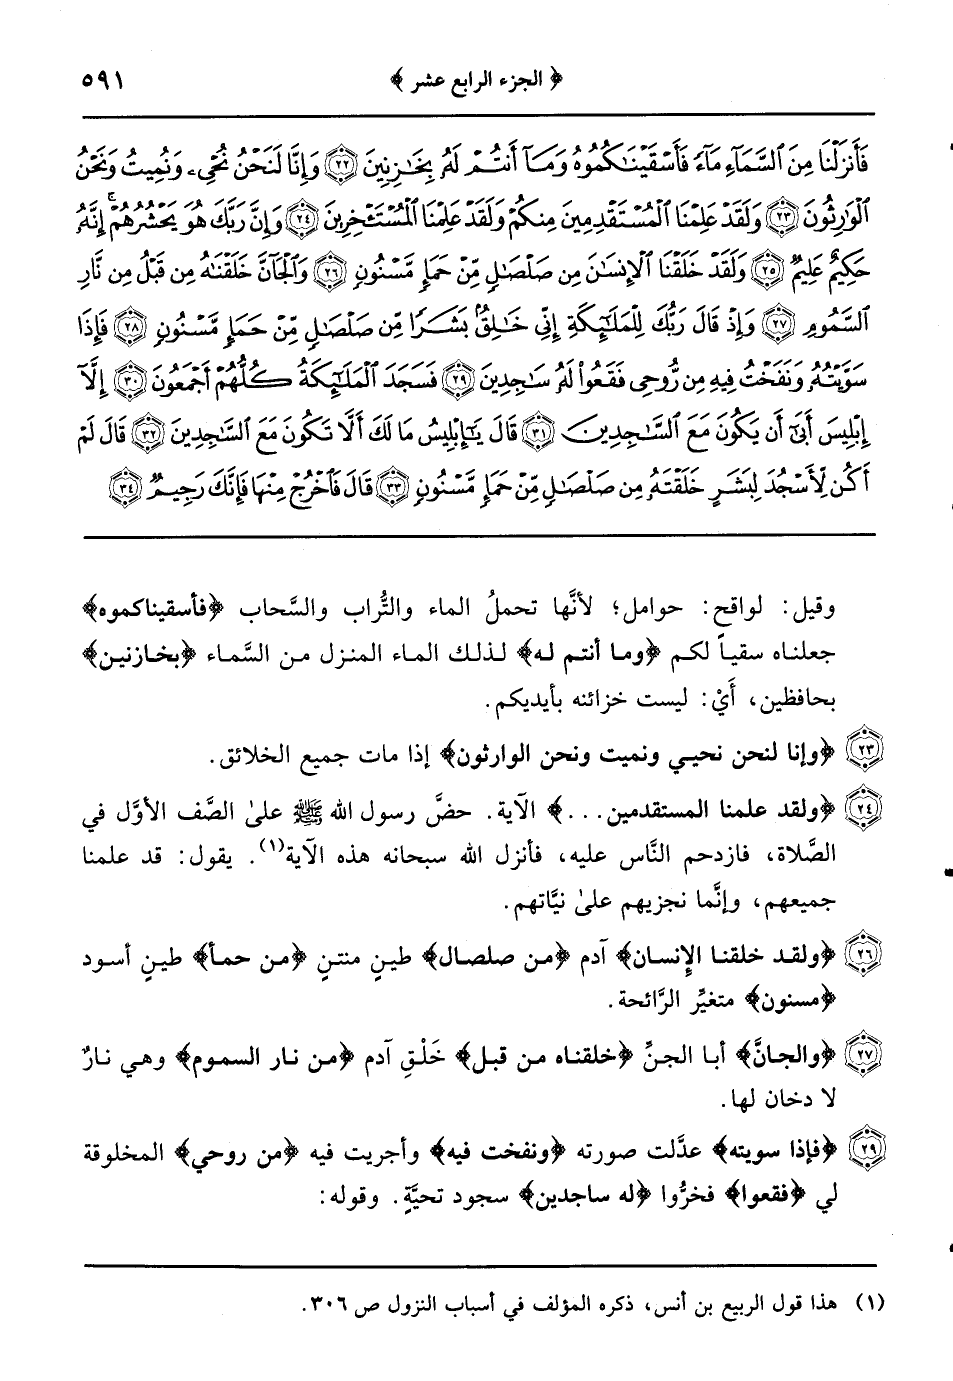 ﴿ الجزء الرابع عشر ﴾ ٥٩١
فَأَنزَلْنَا مِنَ ٱلسَّمَآءِ مَآءً فَأَسْقَيْنَـٰكُمُوهُ وَمَآ أَنتُمْ لَهُۥ بِخَـٰزِنِينَ ﴿٢٢﴾ وَإِنَّا لَنَحْنُ نُحْىِۦ وَنُمِيتُ وَنَحْنُ
ٱلْوَٰرِثُونَ ﴿٢٣﴾ وَلَقَدْ عَلِمْنَا ٱلْمُسْتَقْدِمِينَ مِنكُمْ وَلَقَدْ عَلِمْنَا ٱلْمُسْتَـْٔخِرِينَ ﴿٢٤﴾ وَإِنَّ رَبَّكَ هُوَ يَحْشُرُهُمْ ۚ إِنَّهُۥ
حَكِيمٌ عَلِيمٌ ﴿٢٥﴾ وَلَقَدْ خَلَقْنَا ٱلْإِنسَـٰنَ مِن صَلْصَـٰلٍ مِّنْ حَمَإٍ مَّسْنُونٍ ﴿٢٦﴾ وَٱلْجَآنَّ خَلَقْنَـٰهُ مِن قَبْلُ مِن نَّارِ
ٱلسَّمُومِ ﴿٢٧﴾ وَإِذْ قَالَ رَبُّكَ لِلْمَلَـٰٓئِكَةِ إِنِّى خَـٰلِقٌۢ بَشَرًا مِّن صَلْصَـٰلٍ مِّنْ حَمَإٍ مَّسْنُونٍ ﴿٢٨﴾ فَإِذَا
سَوَّيْتُهُۥ وَنَفَخْتُ فِيهِ مِن رُّوحِى فَقَعُوا۟ لَهُۥ سَـٰجِدِينَ ﴿٢٩﴾ فَسَجَدَ ٱلْمَلَـٰٓئِكَةُ كُلُّهُمْ أَجْمَعُونَ ﴿٣٠﴾ إِلَّآ
إِبْلِيسَ أَبَىٰٓ أَن يَكُونَ مَعَ ٱلسَّـٰجِدِينَ ﴿٣١﴾ قَالَ يَـٰٓإِبْلِيسُ مَا لَكَ أَلَّا تَكُونَ مَعَ ٱلسَّـٰجِدِينَ ﴿٣٢﴾ قَالَ لَمْ
أَكُن لِّأَسْجُدَ لِبَشَرٍ خَلَقْتَهُۥ مِن صَلْصَـٰلٍ مِّنْ حَمَإٍ مَّسْنُونٍ ﴿٣٣﴾ قَالَ فَٱخْرُجْ مِنْهَا فَإِنَّكَ رَجِيمٌ ﴿٣٤﴾
وقيل: لواقح: حوامل؛ لأنَّها تحملُ الماء والتُّراب والسَّحاب ﴿فأسقيناكموه﴾
جعلناه سقياً لكم ﴿وما أنتم له﴾ لذلك الماء المنزل من السَّماء ﴿بخازنين﴾
بحافظين، أَيْ: ليست خزائنه بأيديكم.
﴿٢٣﴾ ﴿وإنا لنحن نحيي ونميت ونحن الوارثون﴾ إذا مات جميع الخلائق.
﴿٢٤﴾ ﴿ولقد علمنا المستقدمين...﴾ الآية. حضَّ رسول الله ﷺ علىٰ الصَّف الأوَّل في
الصَّلاة، فازدحم النَّاس عليه، فأنزل الله سبحانه هذه الآية(١). يقول: قد علمنا
جميعهم، وإنَّما نجزيهم علىٰ نيَّاتهم.
﴿٢٦﴾ ﴿ولقد خلقنا الإنسان﴾ آدم ﴿من صلصال﴾ طينٍ منتنٍ ﴿من حمأ﴾ طينٍ أسود
﴿مسنون﴾ متغيِّر الرَّائحة.
﴿٢٧﴾ ﴿والجانَّ﴾ أبا الجنِّ ﴿خلقناه من قبل﴾ خَلْقِ آدم ﴿من نار السموم﴾ وهي نارٌ
لا دخان لها.
﴿٢٩﴾ ﴿فإذا سويته﴾ عدَّلت صورته ﴿ونفخت فيه﴾ وأجريت فيه ﴿من روحي﴾ المخلوقة
لي ﴿فقعوا﴾ فخرُّوا ﴿له ساجدين﴾ سجود تحيَّةٍ. وقوله:
(١) هذا قول الربيع بن أنس، ذكره المؤلف في أسباب النزول ص ٣٠٦.